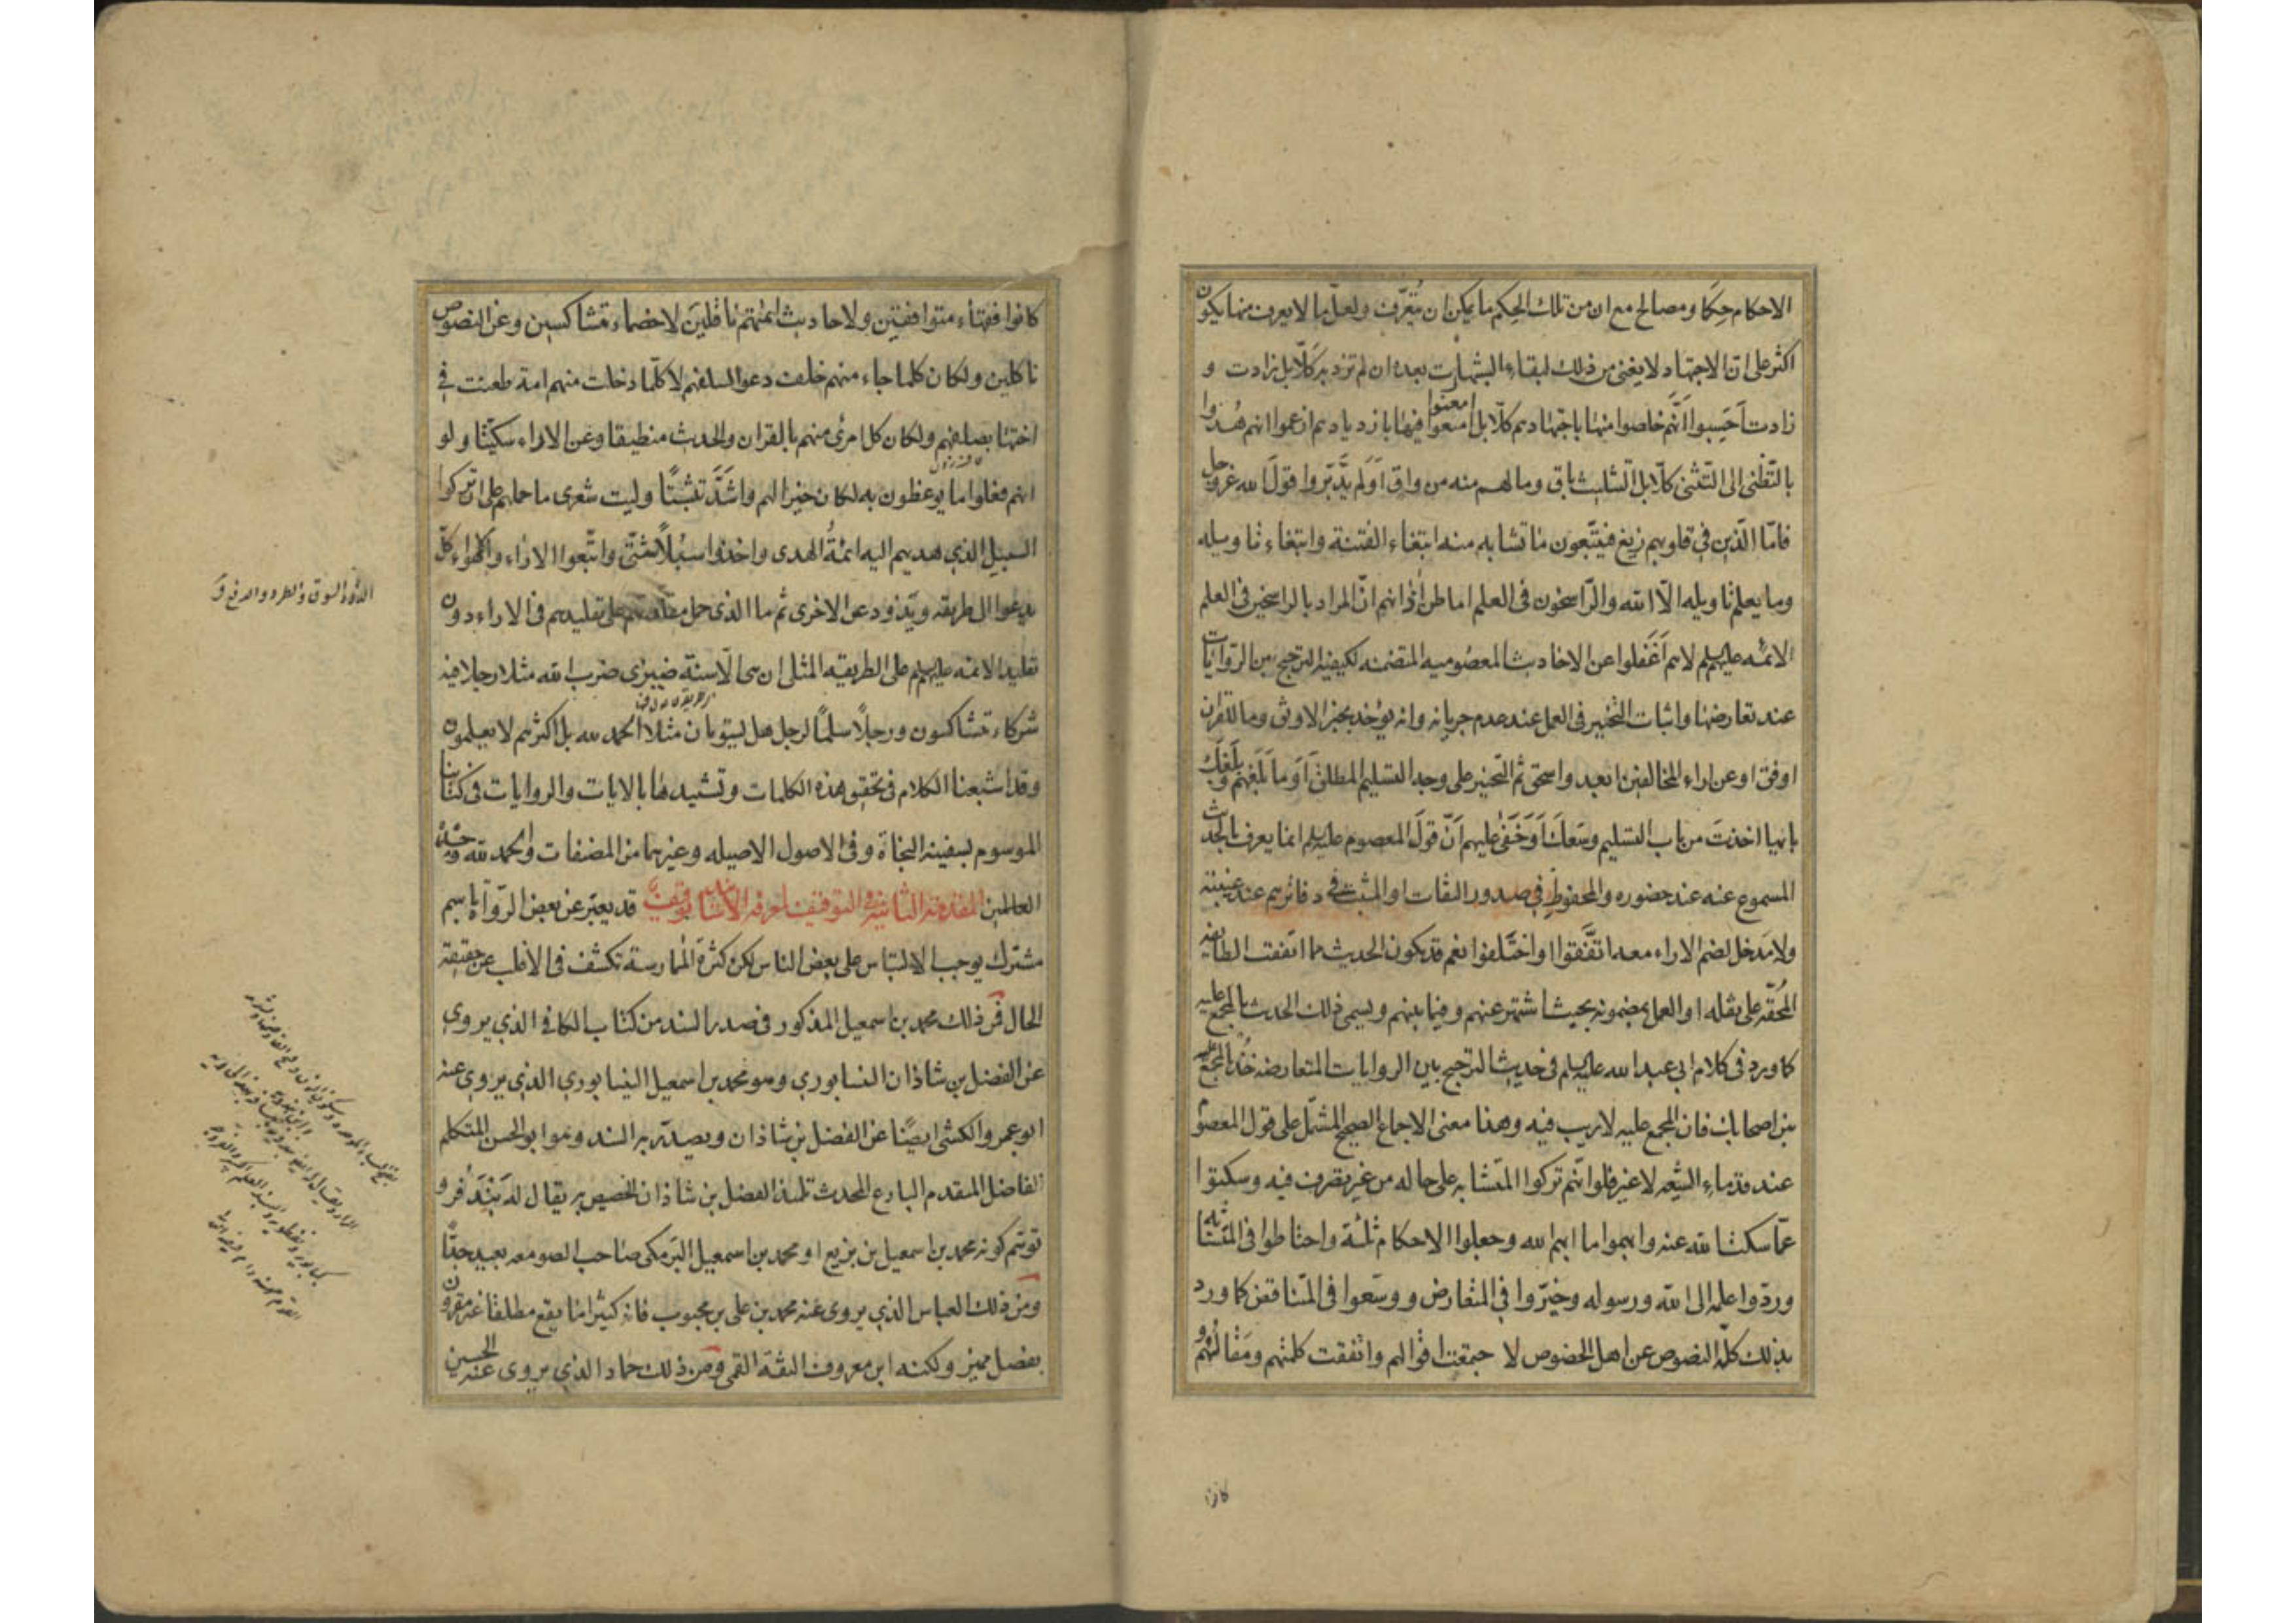 الاحكام حِكَمًا ومصالح مع ان من تلك الحِكم ما يمكن ان يُتَعَرّف ولعلّ ما لا يعرف منها يكون
اكثر على ان الاجتهاد لا يغنى من ذلك لبقاء الشبهات بعده ان لم تزد به كلّا بل زادت و
زادت اَحَسِبوا اَنَّهم خلصوا منها باجتهادهم كلّا بل امعنوا فيها بازديادهم ازعموا انهم هُدوا
بالتّظنى الى التثنى كلّا بل التثليث باق وما لهم منه من واق اَوَلم يدَّبّروا قولَ الله عز وجل
فامّا الّذين فى قلوبهم زيغ فيتّبعون ما تشابه منه ابتغاء الفتنة وابتغاء تاويله
وما يعلم تاويله الّا الله والرّاسخون فى العلم اما طن أذانهم انّ المراد بالراسخين فى العلم
الائمه عليهم السلم لا هم اَغَفَلوا عن الاحاديث المعصوميه المتضمنه لكيفية الترجيح بين الروايات
عند تعارضها واثبات التخيير فى العمل عند عدم جريانه وانه يؤخذ بخبر الاوثق وما للقران
اوفق او عن اراء المخالفين ابعد واسحق ثم التخيير على وجه التسليم المطلق اَوَما بَلَغَهم وبَلَغَك
بايها اخذتَ من باب التسليم وسعك اَوَخَفىَ عليهم اَنّ قولَ المعصوم عليه السلم انما يعرف بالحديث
المسموع عنه عند حضوره والمحفوظ فى صدور الثقات او المثبت فى دفاترهم عند غيبته
ولا مَدخل لضم الاراء معه اتّفقوا او اختلفوا نعم قد يكون الحديث مما اتفقت الطائفه
المُحقّه على نقله او العمل بمضمونه بحيث اشتهر عنهم وفيما بينهم ويسمى ذلك الحديث بالمجمع عليه
كما ورد فى كلام ابى عبدالله عليه السلم فى حديث الترجيح بين الروايات المتعارضه خُذ بالمجمع عليه
بين اصحابك فان المجمع عليه لا ريب فيه وهذا معنى الاجماع الصحيح المشتمل على قول المعصوم
عند قدماء الشيعه لا غير فلو انّهم تركوا المتشابه على حاله من غير تصرف فيه وسكتوا
عمّا سكت الله عنه وابهموا ما ابهم الله وجعلوا الاحكام ثلثة واحتاطوا فى المتشابه
وردّوا علمه الى الله ورسوله وخيّروا فى المتعارض ووسّعوا فى المتناقض كما ورد
بذلك كلّه النصوص عن اهل الخصوص لاجتمعت اقوالهم واتفقت كلمتهم ومَقالُتهُم و
كانوا
كانوا فقهاء متوافقين ولاحاديث ائمتهم ناقلين لا خصماء متشاكسين وعن النصوص
ناكلين ولكان كلما جاء منهم خلف دعوا لسلفهم لا كلّما دخلت منهم امة طعنت فى
اختها بصلفهم ولكان كل امرئ منهم بالقران والحديث منطيقا وعن الاراء سكّيتا ولو
انهم فعلوا ما يوعظون به لكان خيرا لهم واشدَّ تثبيتًا وليت شعرى ما حملهم على ان تركوا
السبيل الذى هديهم اليه ائمةُ الهدى واخذوا سبُلًا شتّى واتّبعوا الاراء والاهواء كلّ
يدعوا الى طريقه ويَذود عن الاخرى ثم ما الذى حمل مقلّديهم على تقليدهم فى الاراء دون
تقليد الائمه عليهم السلم على الطريقه المثلى ان هى الّا سنة ضيزى ضرب الله مثلا رجلا فيه
شركاء متشاكسون ورجلًا سلمًا لرجل هل يستويان مثلا الحمد لله بل اكثرهم لا يعلمون
وقد اشبعنا الكلام فى تحقيق هذه الكلمات وتشييدها بالايات والروايات فى كتابنا
الموسوم بسفينة النجاة وفى الاصول الاصيله وغيرهما من المصنفات والحمد لله وحده
العالمين المقدمة الثانية فى التوقيف لمعرفة الاسانيد قد يعبّر عن بعض الرّواة باسم
مشترك يوجب الالتباس على بعض الناس لكن كثرة الممارسة تكشف فى الاغلب عن حقيقة
الحال فمن ذلك محمد بن اسمعيل المذكور فى صدر السند من كتاب الكافى الذى يروى
عن الفضل بن شاذان النيسابورى وهو محمد بن اسمعيل النيسابورى الذى يروى عنه
ابو عمرو الكشى ايضًا عن الفضل بن شاذان ويصدّر به السند وهو ابو الحسن المتكلم
الفاضل المتقدم البارع المحدث تلميذ الفضل بن شاذان الخصيص به يقال له بَندَفَر و
توهّم كونه محمد بن اسمعيل بن بزيع او محمد بن اسمعيل البَرمكى صاحب الصومعه بعيد جدًّا
ومن ذلك العباس الذى يروى عنه محمد بن على بن محبوب فانه كثيرا ما يقع مطلقا غير مقرون
بفصل مميز ولكنه ابن معروف الثقة القمى ومن ذلك حماد الذى يروى عنه الحسين